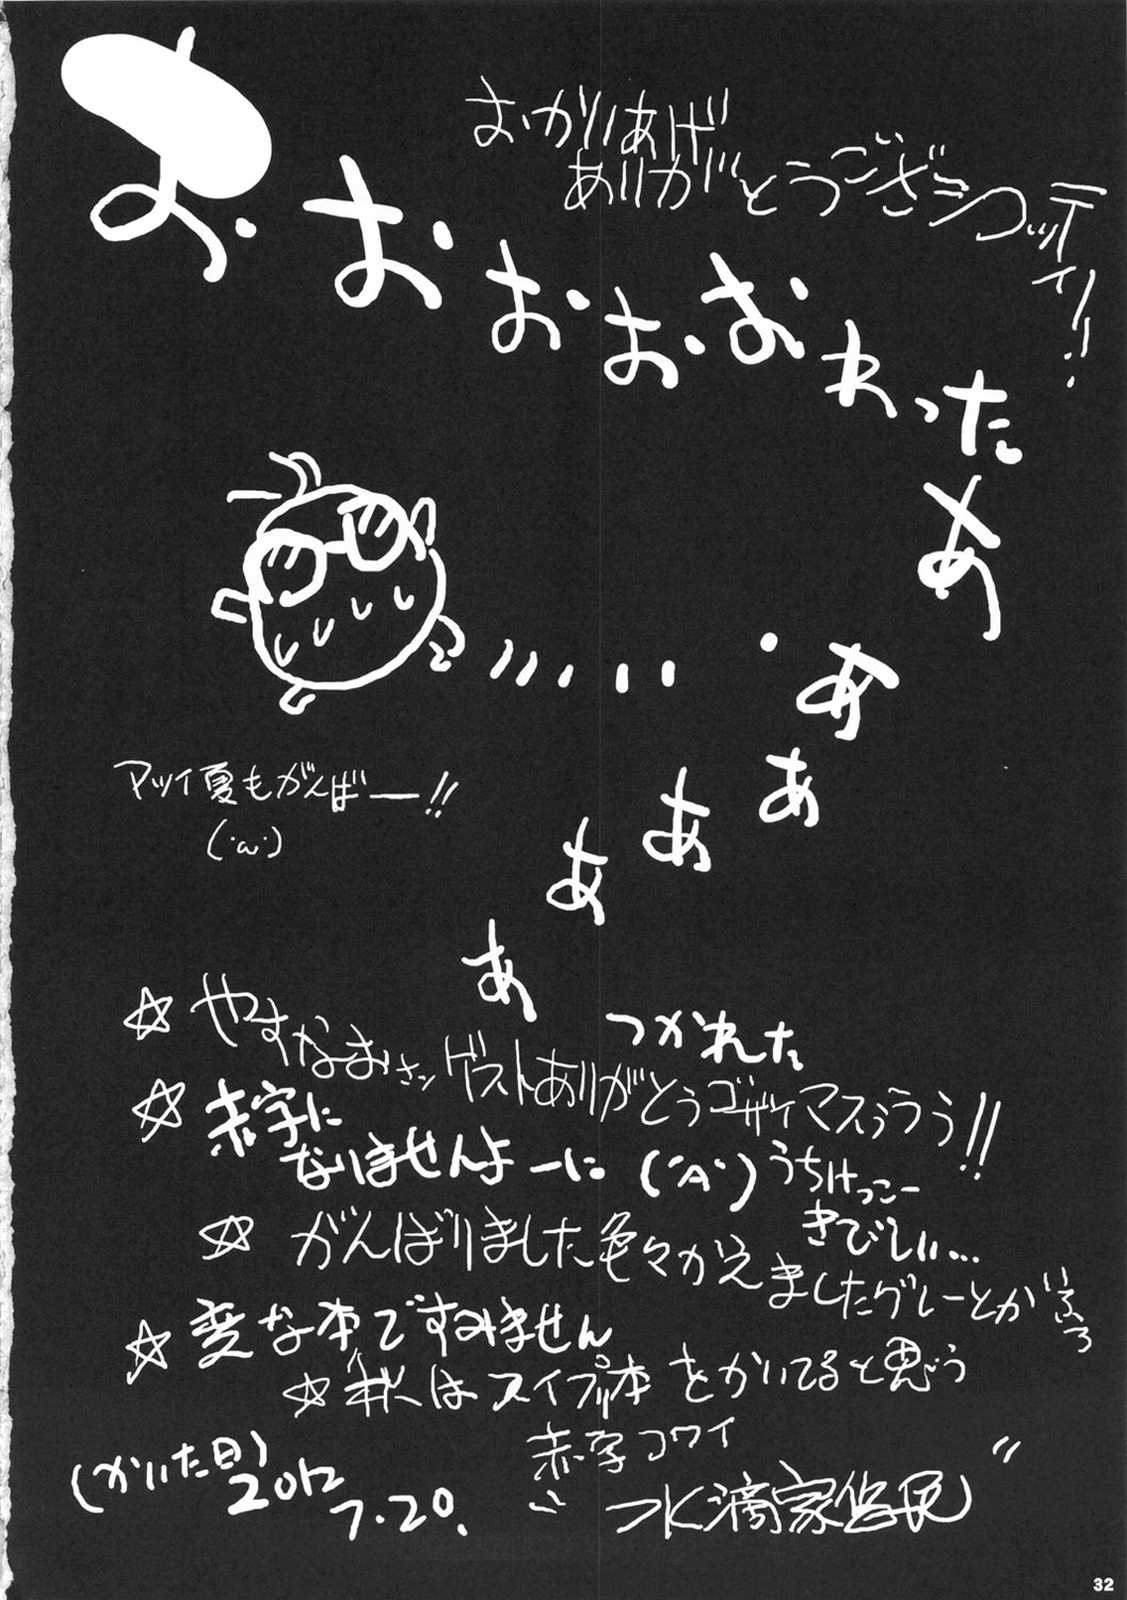 おかいあげ
ありがとうございコッティ!!
おおおおおわったああああああ
アツイ夏もがんばー!!
(・ω・)
つかれた
☆やすなおさンゲストありがとうゴザイマスぅうう!!
☆赤字に
なりませんよーに(・A・)うちけっこー
きびしい…
☆がんばりました色々かえましたグレーとか
☆変な本ですみません
☆秋はスイプリ本をかいてると思う
赤字コワイ
(かいた日)
2012
7.20.
32